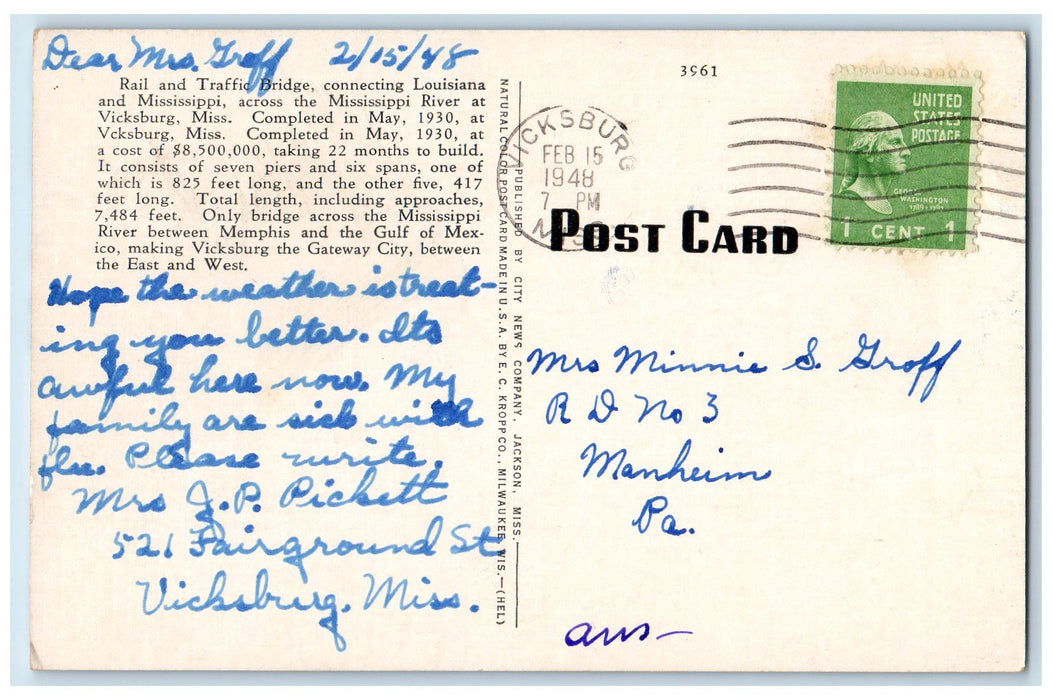 Dear Mrs. Groff 2/15/48
Rail and Traffic Bridge, connecting Louisiana
and Mississippi, across the Mississippi River at
Vicksburg, Miss. Completed in May, 1930, at
Vcksburg, Miss. Completed in May, 1930, at
a cost of $8,500,000, taking 22 months to build.
It consists of seven piers and six spans, one of
which is 825 feet long, and the other five, 417
feet long. Total length, including approaches,
7,484 feet. Only bridge across the Mississippi
River between Memphis and the Gulf of Mex-
ico, making Vicksburg the Gateway City, between
the East and West.
Hope the weather is treat-
ing you better. Its
awful here now. My
family are sick with
flu. Please write.
Mrs J. P. Pickett
521 Fairground St
Vicksburg. Miss.
NATURAL COLOR POST CARD MADE IN U.S.A. BY E. C. KROPP CO., MILWAUKEE, WIS.—(HEL)
PUBLISHED BY CITY NEWS COMPANY, JACKSON, MISS.
3961
VICKSBURG
FEB 15
1948
7 PM
MISS
UNITED
STATES
POSTAGE
GEORGE
WASHINGTON
1789-1797
1 CENT 1
POST CARD
Mrs Minnie S. Groff
R D No 3
Manheim
Pa.
ans—